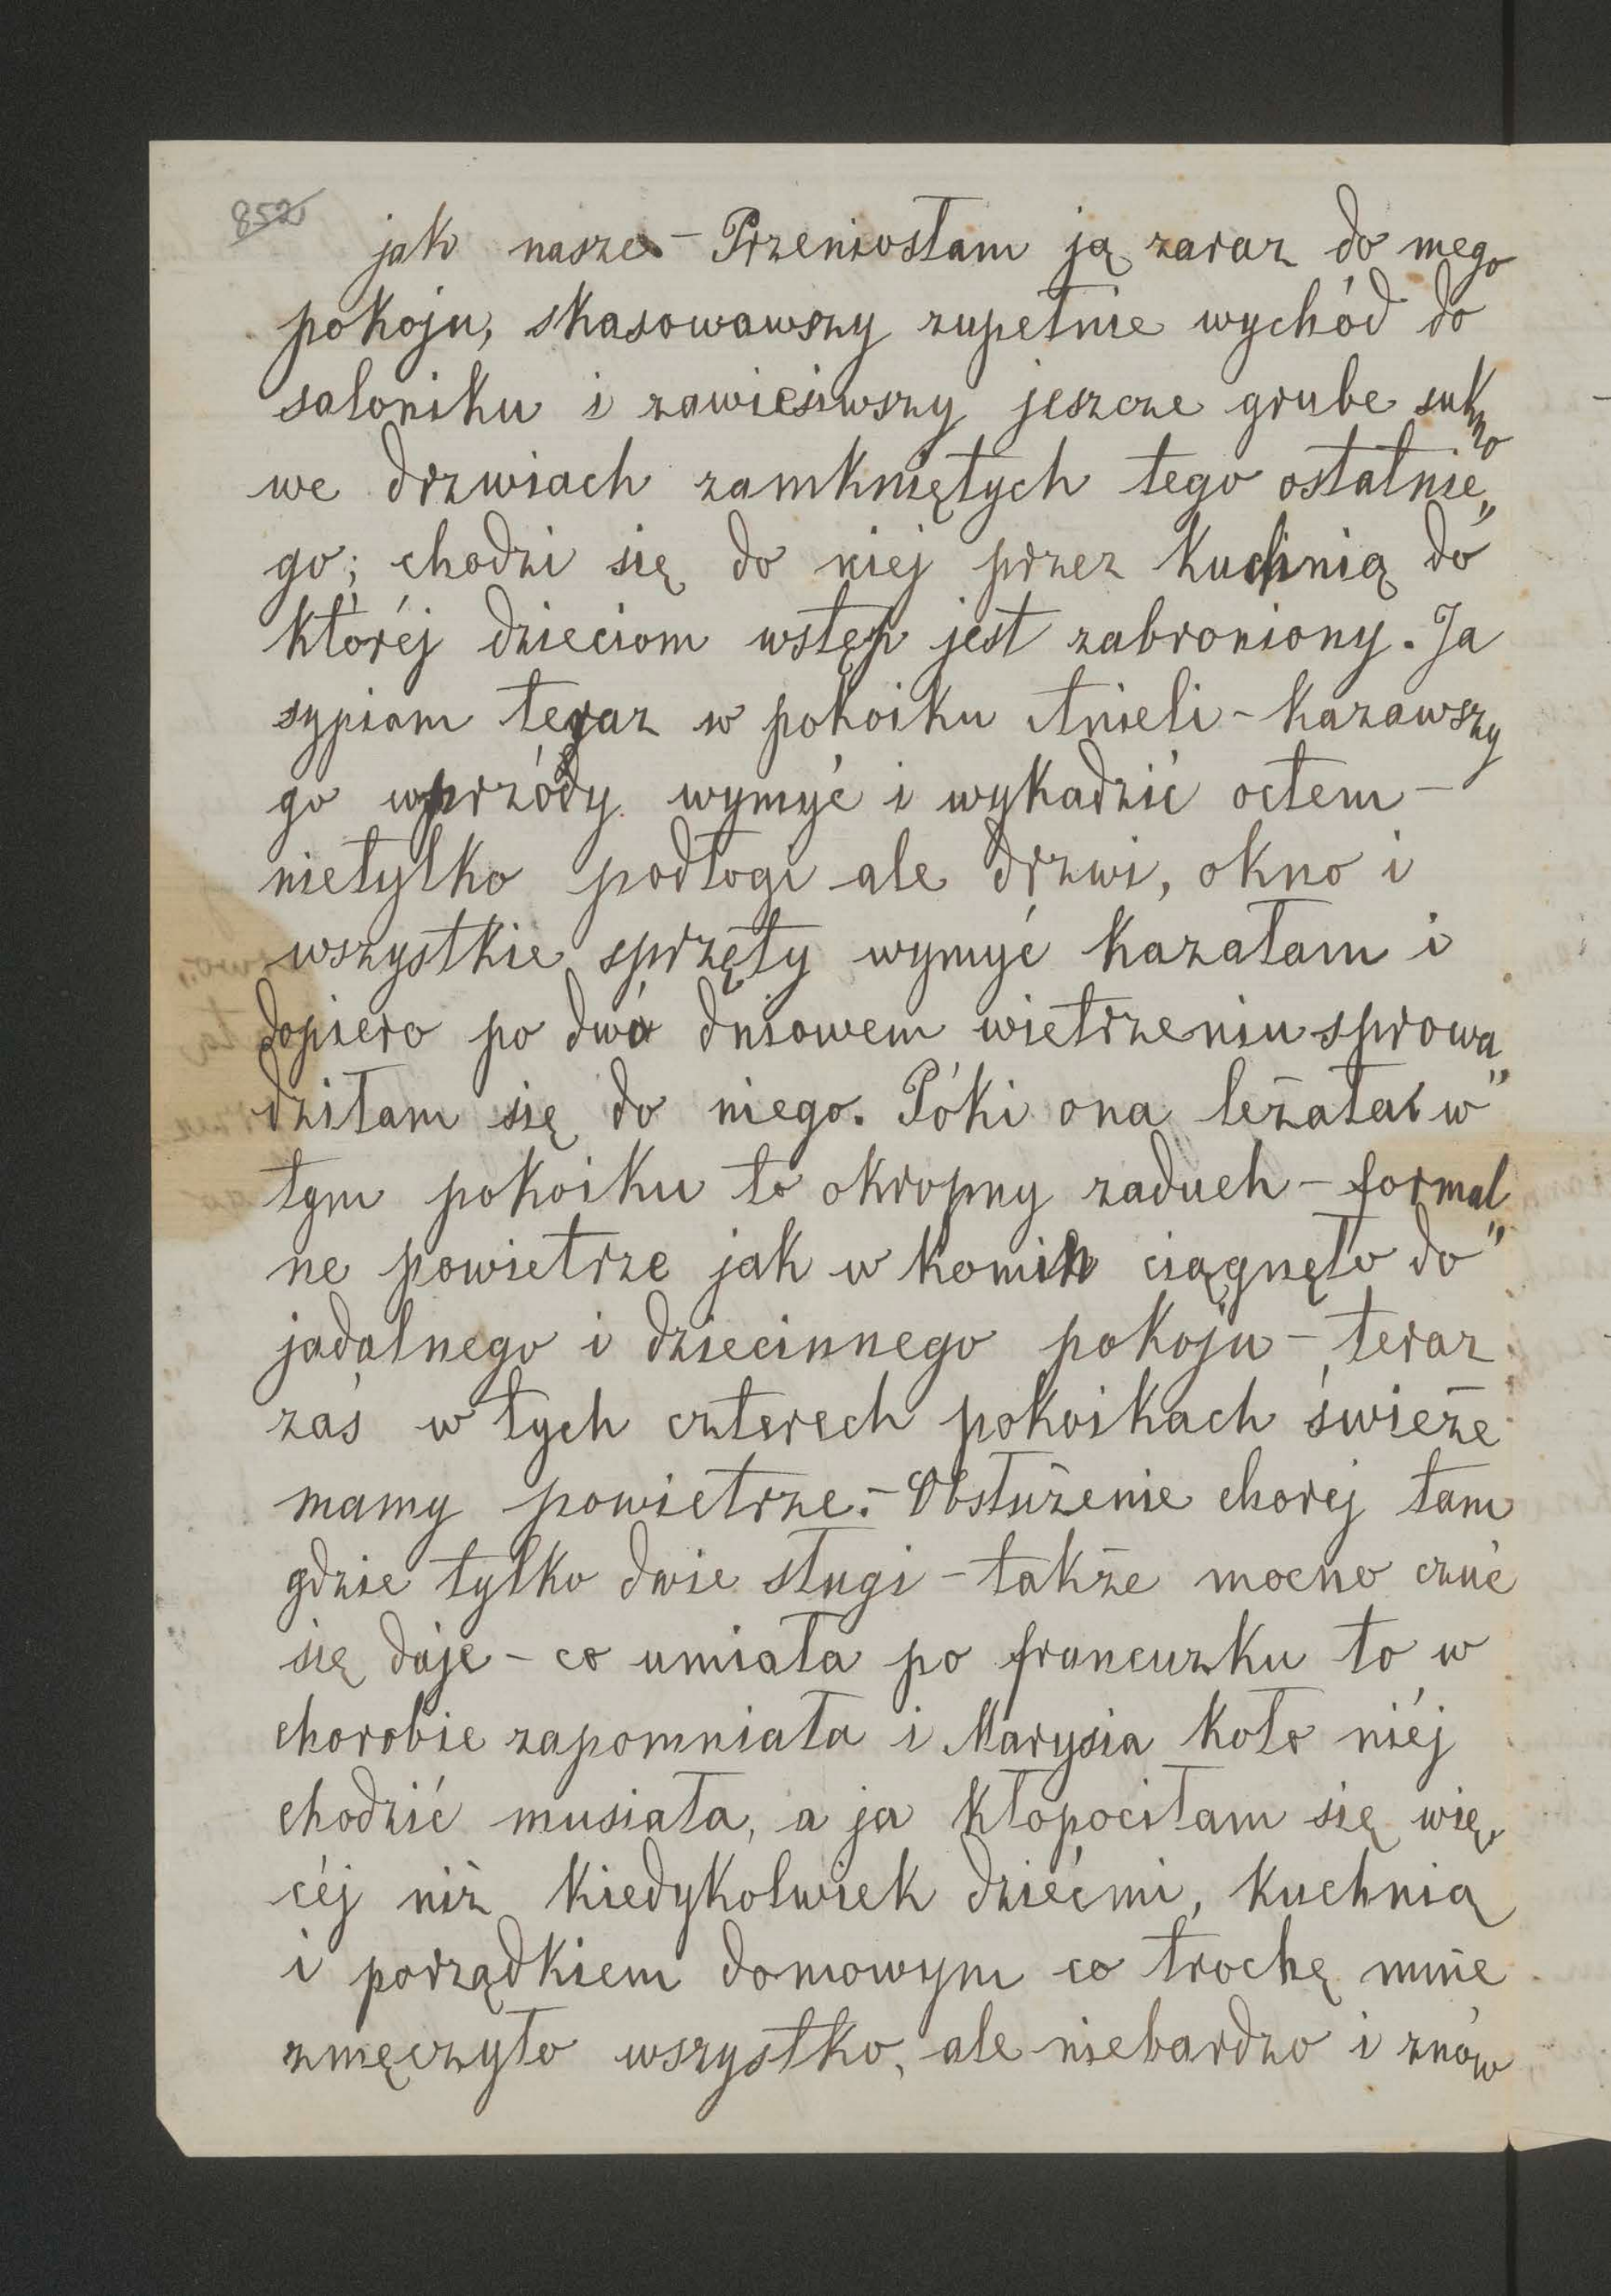 852
jak nasze – Przeniosłam ją zaraz do mego
pokoju, skasowawszy zupełnie wychód do
saloniku i zawiesiwszy jeszcze grube sukno
we drzwiach zamkniętych tego ostatnie„
go; chodzi się do niej przez kuchnią do
któréj dzieciom wstęp jest zabroniony. Ja
sypiam teraz w pokoiku Anieli – kazawszy
go wprzódy wymyć i wykadzić octem –
nietylko podłogi ale drzwi, okno i
wszystkie sprzęty wymyć kazałam i
dopiero po dwa dniowem wietrzeniu sprowa„
dziłam się do niego. Póki ona leżała w
tym pokoiku to okropny zaduch – formal„
ne powietrze jak w komin ciągnęło do
jadalnego i dziecinnego pokoju – teraz
zaś w tych czterech pokoikach świeże
mamy powietrze. – Obsłużenie chorej tam
gdzie tylko dwie sługi – także mocno czuć
się daje – co umiała po francuzku to w
chorobie zapomniała i Marysia koło niéj
chodzić musiała, a ja kłopociłam się wię„
céj niż kiedykolwiek dziećmi, kuchnią
i porządkiem domowym co trochę mnie
zmęczyło wszystko, ale niebardzo i znów